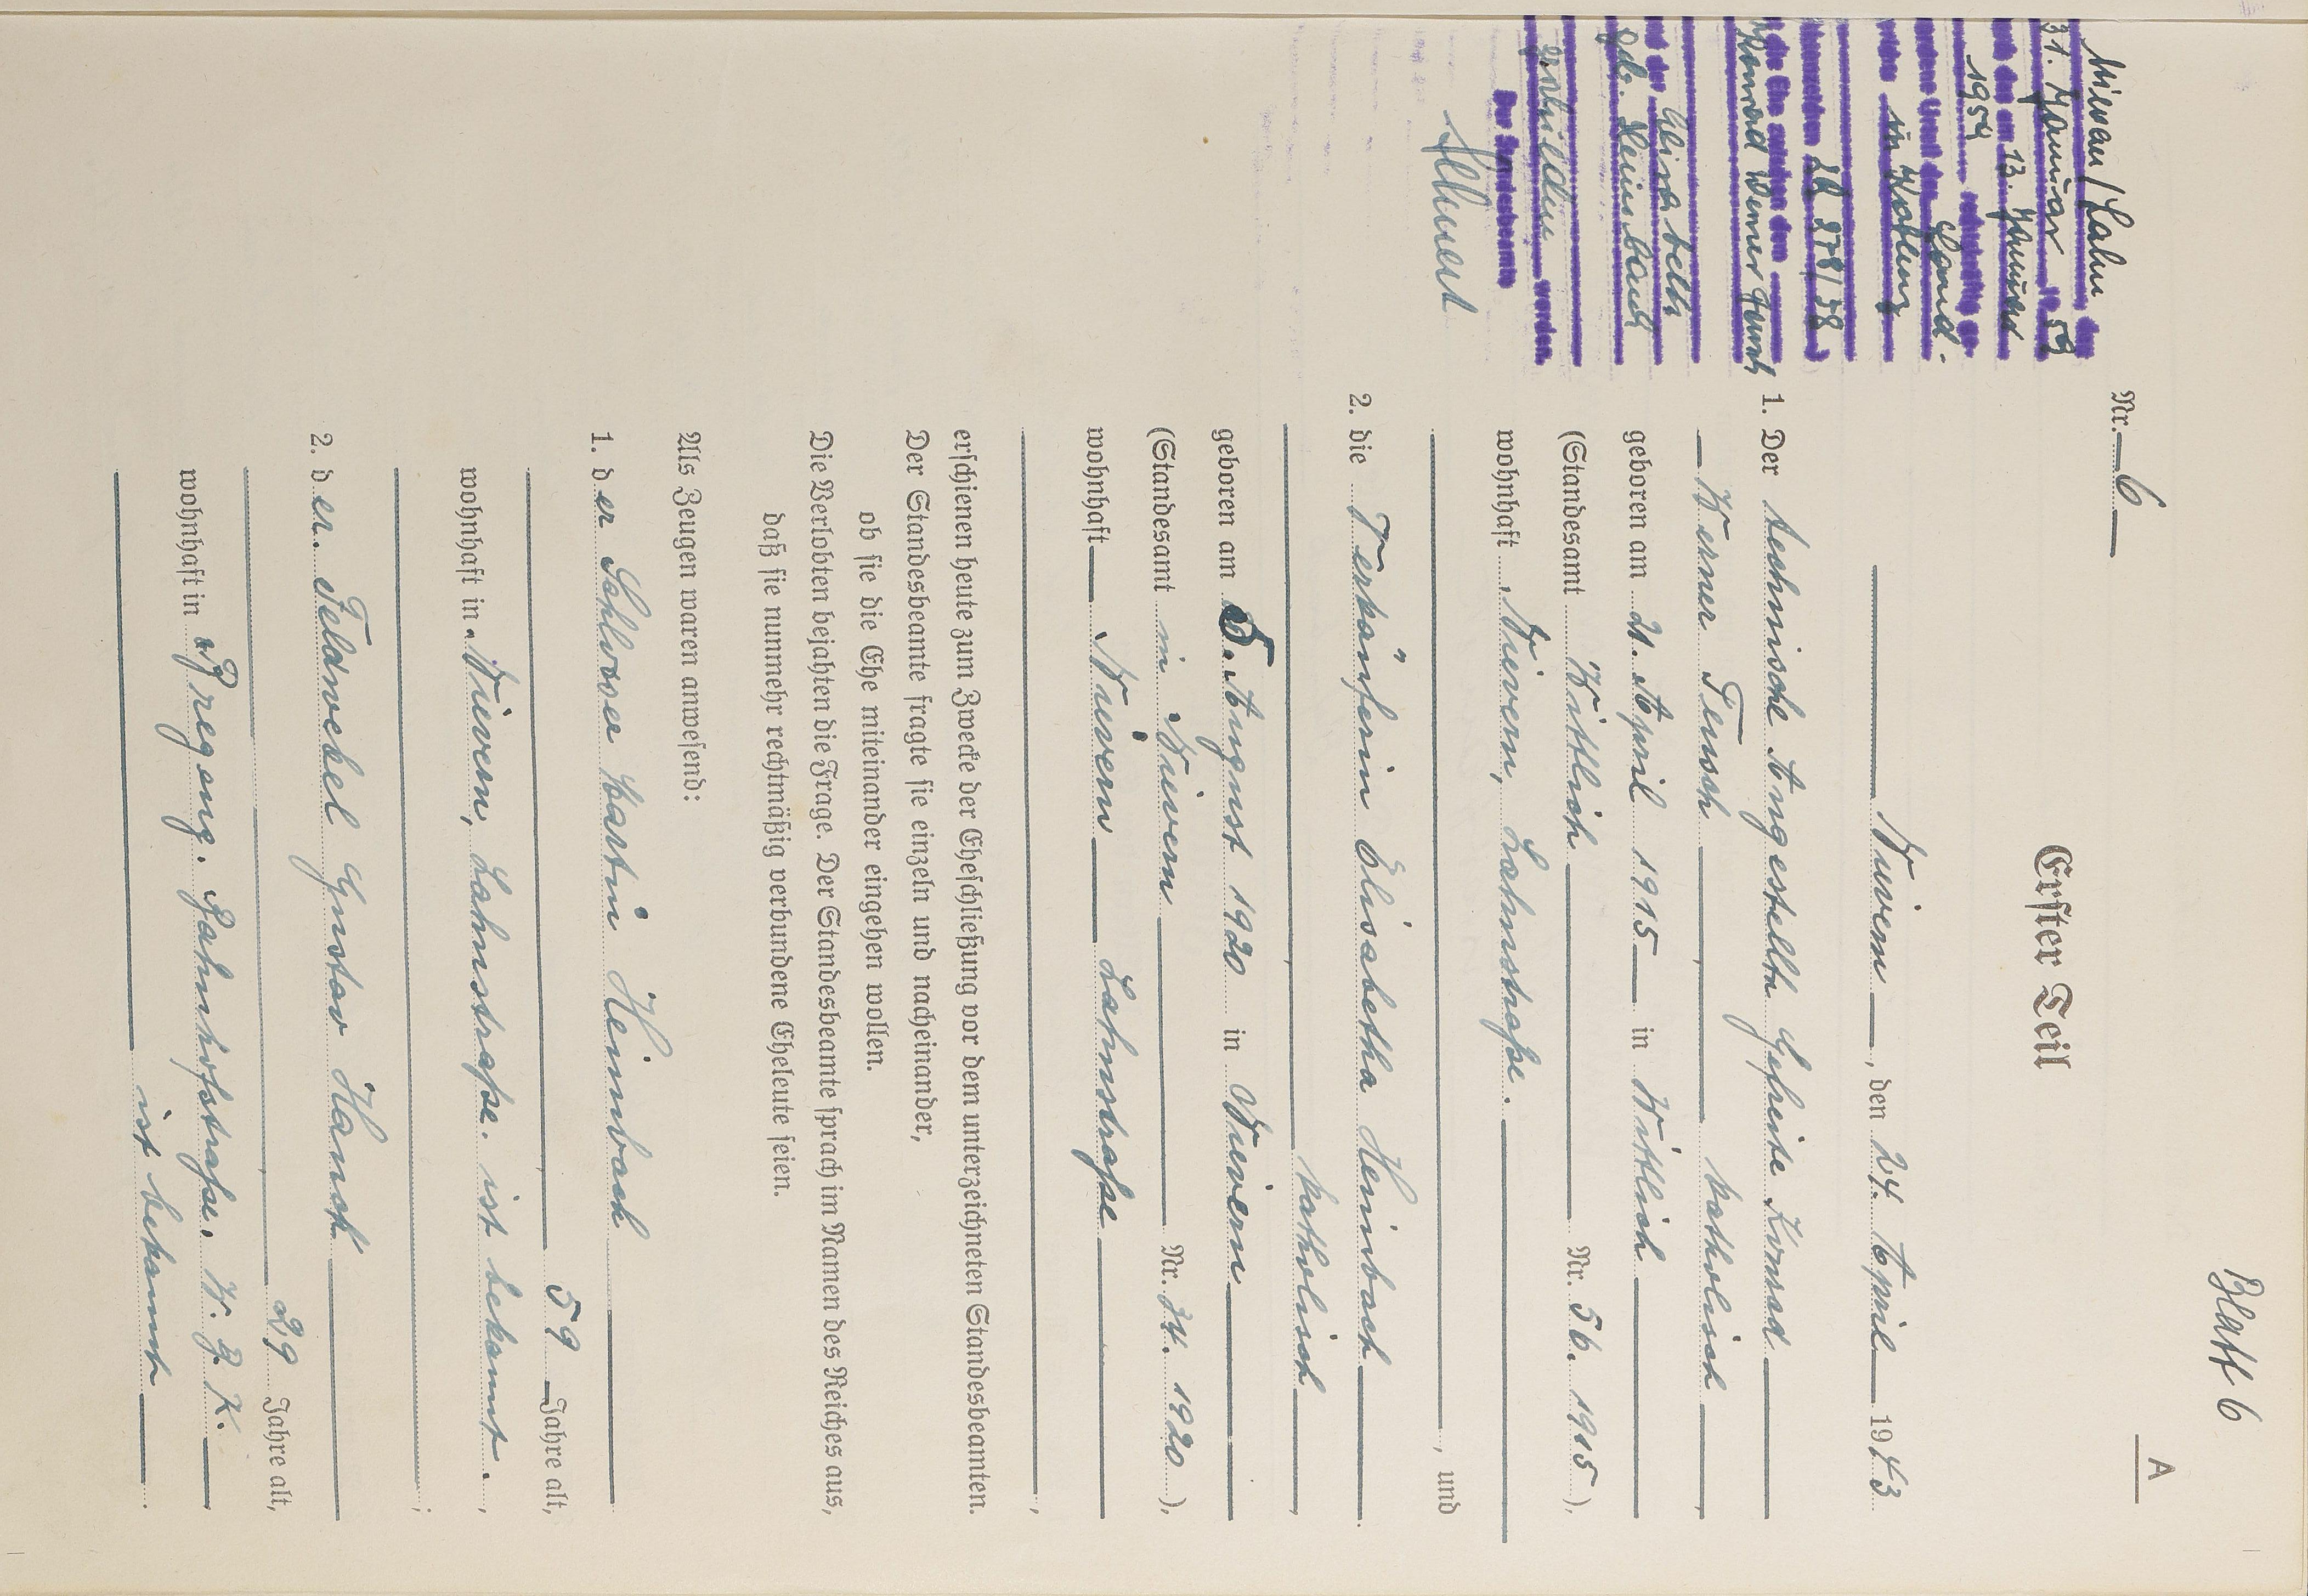 Blatt 6
A
Nr. 6
Erster Teil
Nievern, den 24. April 1943
1. Der technische Angestellte Gefreite Konrad
Werner Feusch katholisch
geboren am 21. April 1915 in Wittlich
(Standesamt Wittlich Nr. 56. 1915),
wohnhaft Nievern, Lahnstraße.
, und
2. die Verkäuferin Elisabetha Heinbach
katholisch,
geboren am 5. August 1920 in Nievern
(Standesamt in Nievern Nr. 34. 1920),
wohnhaft Nievern Lahnstraße
,
erschienen heute zum Zwecke der Eheschließung vor dem unterzeichneten Standesbeamten.
Der Standesbeamte fragte sie einzeln und nacheinander,
ob sie die Ehe miteinander eingehen wollen.
Die Verlobten bejahten die Frage. Der Standesbeamte sprach im Namen des Reiches aus,
daß sie nunmehr rechtmäßig verbundene Eheleute seien.
Als Zeugen waren anwesend:
1. der Schlosser Martin Heinbach
59 Jahre alt,
wohnhaft in Nievern, Lahnstraße. ist bekannt.,
;
2. der Feldwebel Gustav Hansch
29 Jahre alt,
wohnhaft in Bregenz. Bahnhofstraße. W. B. K.
ist bekannt.
Nievern/Lahn, den
31. Januar 1959
durch das am 13. Januar
1959 rechtskräftig ge-
wordene Urteil des Land-
gerichts in Koblenz
(Aktenzeichen 2 R 278/58)
ist die Ehe zwischen dem
Konrad Werner
und der Elisabeth
geb. Heinbach
geschieden worden.
Der Standesbeamte